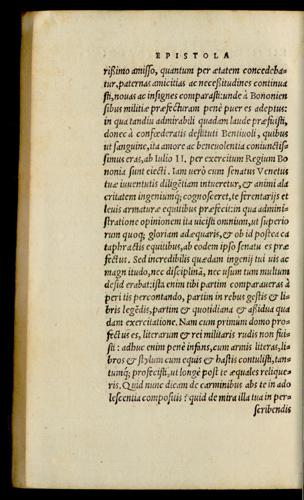 EPISTOLA
rißimo amisso, quantum per ætatem concedeba-
tur, paternas amicitias ac necesſitudines continua
sti, nouas ac insignes comparasti: unde à Bononien
sibus militiæ præfecturam penè puer es adeptus:
in qua tandiu admirabili quadam laude præfuisti,
donec à confœderatis destituti Bentiuoli, quibus
ut sanguine, ita amore ac beneuolentia coniunctis-
simus eras, ab Iulio II. per exercitum Regium Bo
nonia sunt eiecti. Iam uerò cum senatus Venetus
tuæ iuuentutis diligẽtiam intueretur, & animi ala
critatem ingeniumq; cognosceret, te ferentarijs et
leuis armaturæ equitibus præfecit: in qua admini-
stratione opinionem ita uicisti omnium, ut superio
rum quoq; gloriam adæquaris, & ob id postea ca
taphractis equitibus, ab eodem ipso senatu es præ
fectus. Sed incredibilis quædam ingenij tui uis ac
magnitudo, nec disciplinã, nec usum tum multum
desiderabat: ista enim tibi partim comparaueras à
peritis percontando, partim in rebus gestis & li-
bris legẽdis, partim & quotidiana & aßidua qua
dam exercitatione. Nam cum primum domo pro-
fectus es, literarum & rei militaris rudis non fui-
sti: adhuc enim penè infans, cum armis literas, li-
bros & stylum cum equis & hastis contulisti, tan-
tumq; profecisti, ut longè post te æquales relique-
ris. Quid nunc dicam de carminibus abs te in ado
lescentia compositis? quid de mira illa tua in per-
scribendis